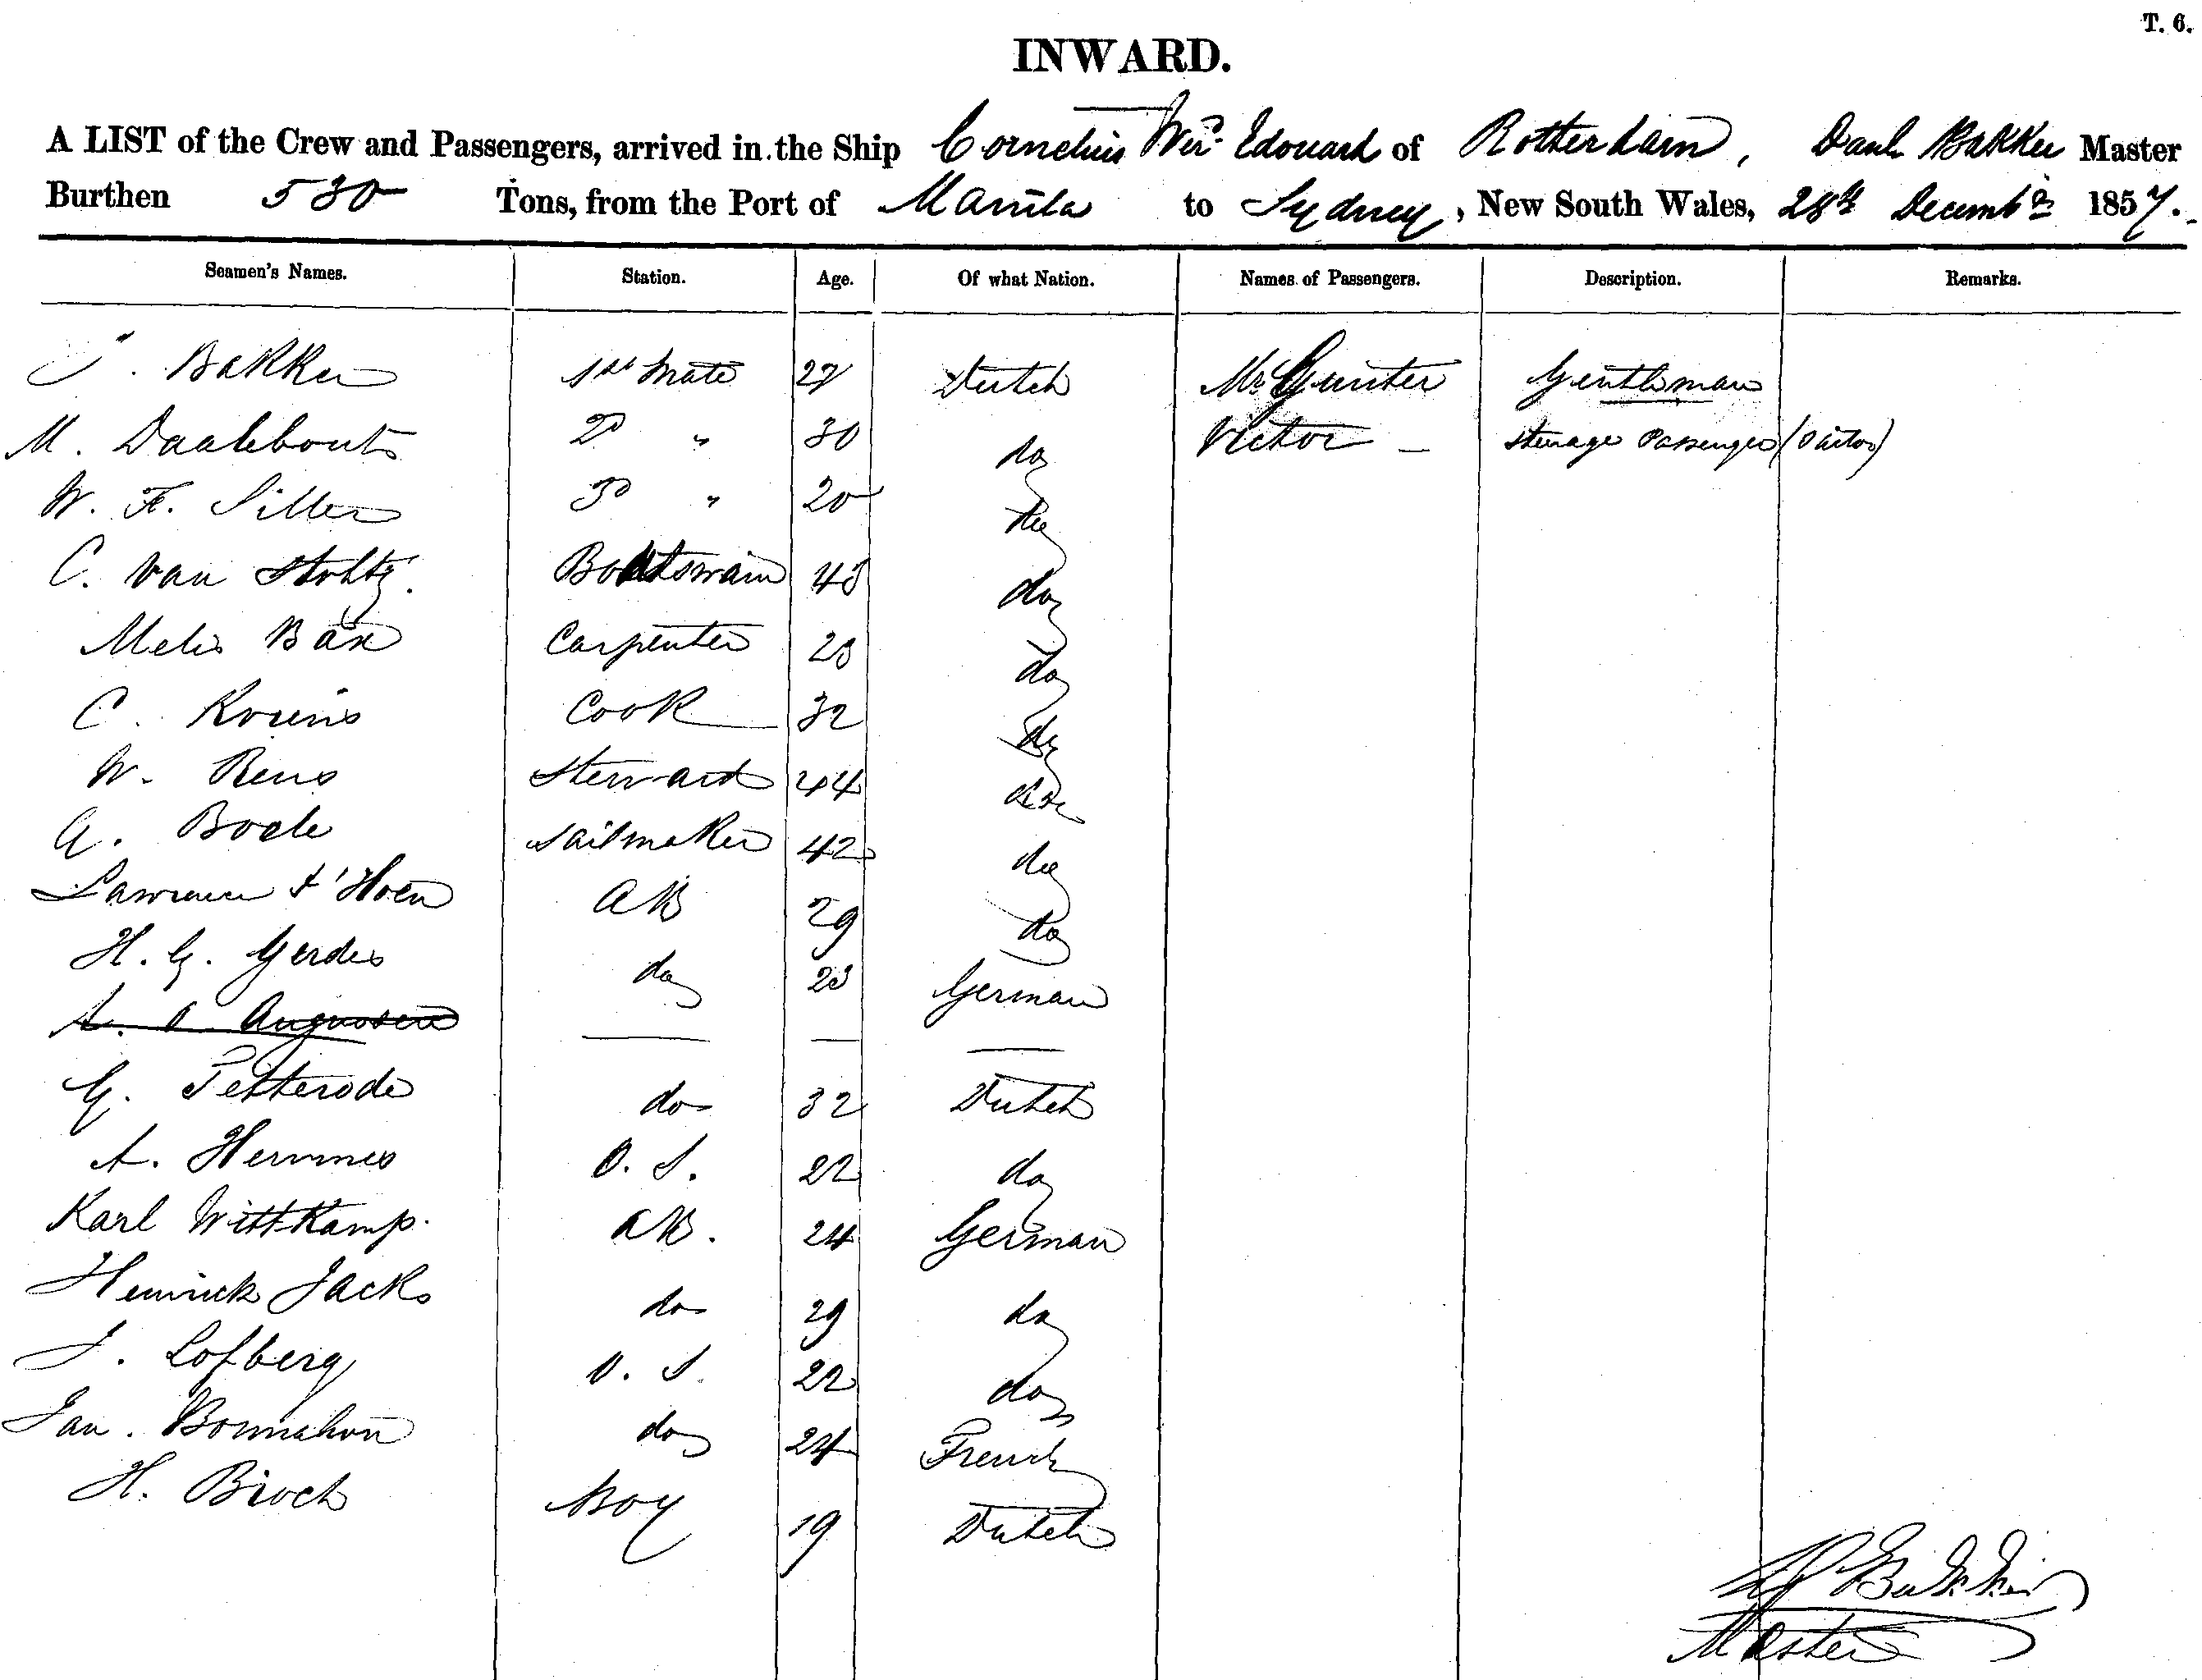 T. 6.
INWARD.
A LIST of the Crew and Passengers, arrived in the Ship Cornelius Wm. Edouard of Rotterdam, Danl. Bakker Master
Burthen 530 Tons, from the Port of Manila to Sydney, New South Wales, 28th Decembr 1857.
Seamen's Names. Station. Age. Of what Nation. Names of Passengers. Description. Remarks.
Bakker 1st Mate Dutch Mr. Gunter Gentleman
M. Daalebout 2D " 30 do Victor - Steerage Passenger
W. F. Siller 3D " 20 do
C. van Stohtz. Boatswain do
Melis Bax Carpenter do
C. Cook 32 do
W. Rens Steward 44 do
Bode Sailmaker 42 do
Lawrence t'Hoen AB 29 do
H. G. Gerdes do German
G. Petterode do 32 Dutch
A. Hemmes O. S. 22 do
Karl Wittkamp. AB. 24 German
Henrick Jacks do 29 do
J. Lofberg O. S. 22 do
Jan. Bonnahon do 24 French
H. Broch Boy 19 Dutch
D Bakker
Master